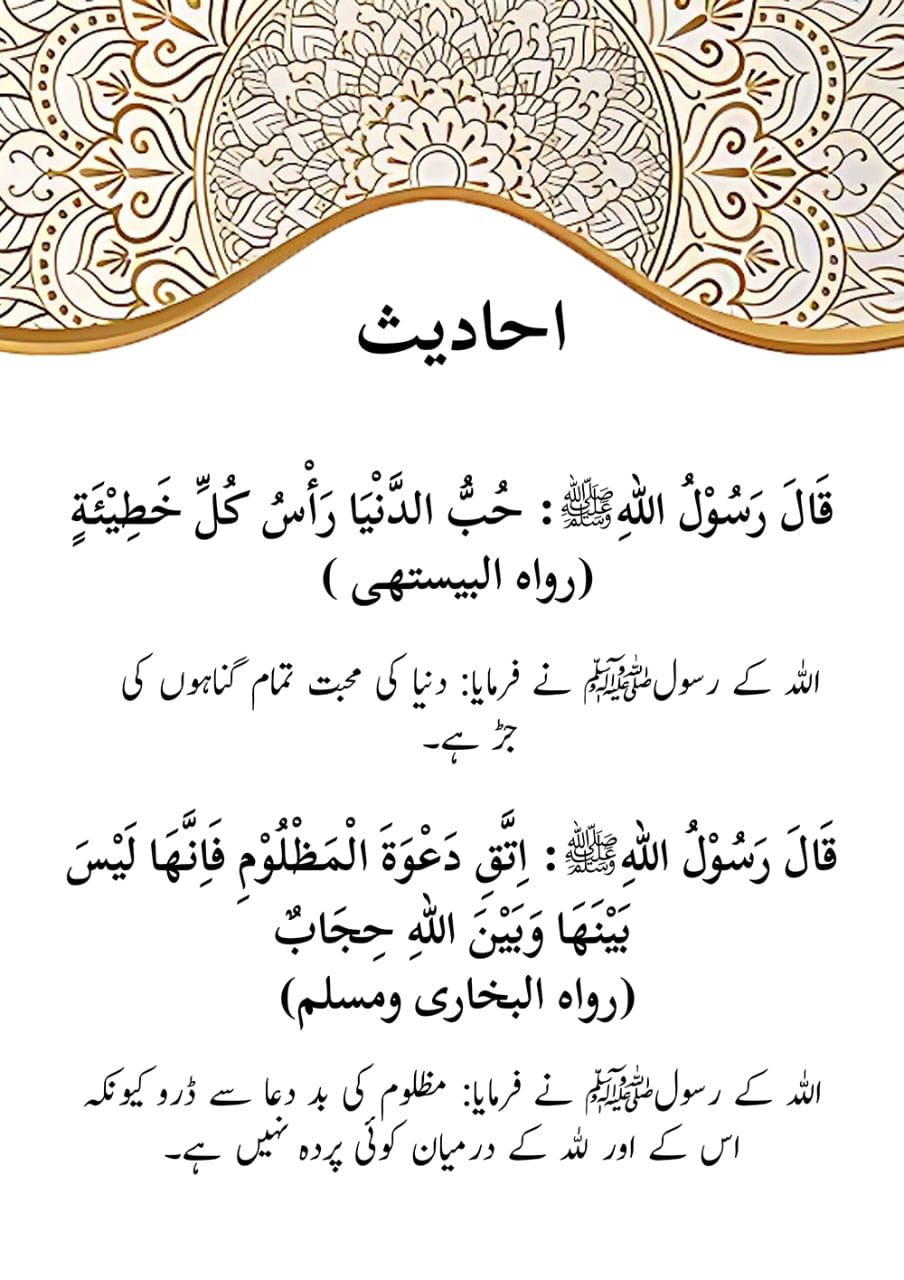 احادیث
قَالَ رَسُوْلُ اللهِﷺ: حُبُّ الدَّنْيَا رَأْسُ كُلِّ خَطِيْئَةٍ
(رواه البيستهى )
اللہ کے رسولﷺ نے فرمایا: دنیا کی محبت تمام گناہوں کی
جڑ ہے۔
قَالَ رَسُوْلُ اللهِﷺ: اِتَّقِ دَعْوَةَ الْمَظْلُوْمِ فَاِنَّهَا لَيْسَ
بَيْنَهَا وَبَيْنَ اللهِ حِجَابٌ
(رواه البخارى ومسلم)
اللہ کے رسولﷺ نے فرمایا: مظلوم کی بد دعا سے ڈرو کیونکہ
اس کے اور للہ کے درمیان کوئی پردہ نہیں ہے۔